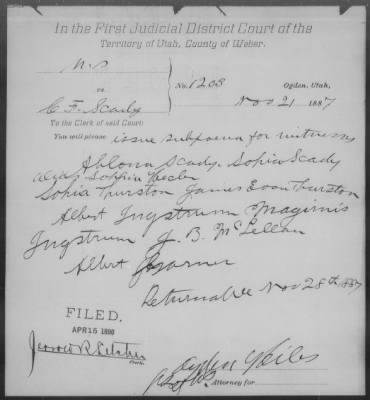 In the First Judicial District Court of the
Territory of Utah, County of Weber.
U.S
vs.
No. 1203
Ogden, Utah,
C F. Scady
Nov 21 1887
To the Clerk of said Court:
You will please issue subpoena for witnesses
Scady. Sophia Scady
alias Sophia
Sophia Thurston James Evan Thurston
Albert Ingstrum Maginis
Ingstrum J. B. McLellan
Albert Garner
Returnable Nov 28th 1887
FILED.
APR 15 1890
Clerk.
Ogden Hiles
Attorney for